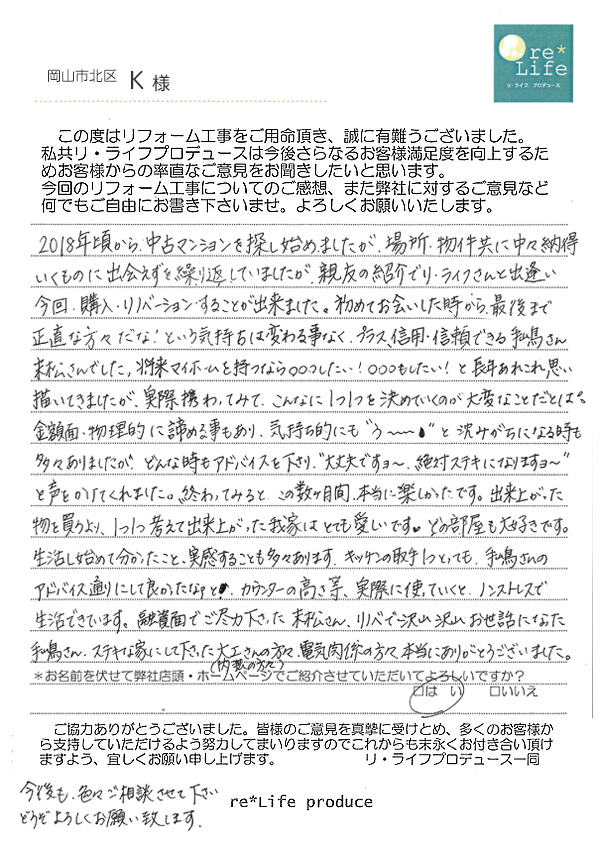 岡山市北区 K 様
re*
Life
リ・ライフ プロデュース
この度はリフォーム工事をご用命頂き、誠に有難うございました。
私共リ・ライフプロデュースは今後さらなるお客様満足度を向上するた
めお客様からの率直なご意見をお聞きしたいと思います。
今回のリフォーム工事についてのご感想、また弊社に対するご意見など
何でもご自由にお書き下さいませ。よろしくお願いいたします。
2018年頃から、中古マンションを探し始めましたが、場所・物件共に中々納得
いくものに出会えずを繰り返していましたが、親友の紹介でリ・ライフさんと出逢い
今回、購入・リノベーションすることが出来ました。初めてお会いした時から、最後まで
正直な方々だな!という気持ちは変わる事なく、プラス、信用・信頼できる 島さん
末松さんでした。将来マイホームを持つなら○○○したい!○○○もしたい!と長年あれこれ思い
描いてきましたが、実際携わってみて、こんなに1つ1つを決めていくのが大変なことだとは。
金額面・物理的に諦める事もあり、気持ち的にも“う〜〜”と沈みがちになる時も
多々ありましたが、どんな時もアドバイスを下さり、“大丈夫ですョ〜、絶対ステキになりますョ〜”
と声をかけてくれました。終わってみると、この数ヶ月間、本当に楽しかったです。出来上がった
物を買うより、1つ1つ考えて出来上がった我家はとても愛しいです。どの部屋も大好きです。
生活し始めて分かったこと、実感することも多々あります。キッチンの取手1つとっても、 島さんの
アドバイス通りにして良かったなぁと。カウンターの高さ等、実際に使っていくと、ノンストレスで
生活できています。融資面でご尽力下さった 末松さん、リノベで沢山沢山お世話になった
島さん、ステキな家にして下さった大工さんの方々、電気関係の方々、本当にありがとうございました。
(内装の方々)
*お名前を伏せて弊社店頭・ホームページでご紹介させていただいてよろしいですか?
□は い □いいえ
ご協力ありがとうございました。皆様のご意見を真摯に受けとめ、多くのお客様か
ら支持していただけるよう努力してまいりますのでこれからも末永くお付き合い頂け
ますよう、宜しくお願い申し上げます。 リ・ライフプロデュース一同
今後も、色々ご相談させて下さい
どうぞよろしくお願い致します。
re*Life produce